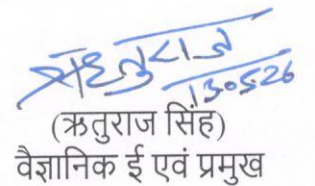 ऋतुराज
13.05.26
(ऋतुराज सिंह)
वैज्ञानिक ई एवं प्रमुख